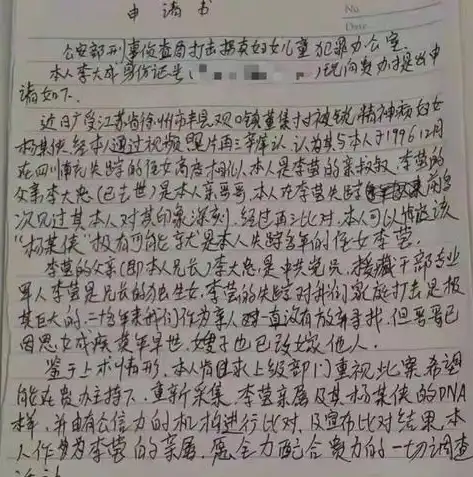 申请书
No.
Date
公安部刑事侦查局打击拐卖妇女儿童犯罪办公室
本人李大成身份证号( )现向贵办提出申
请如下.
近日广受江苏省徐州市丰县欢口镇董集村被锁精神病妇女
杨某侠经本人通过视频照片再三辨认,认为其与本人于1996.12月
在四川南充失踪的侄女高度相似,本人是李莹的亲叔叔,李莹的
父亲李大忠(已去世)是本人亲哥哥,本人在李莹失踪前多
次见过其本人对其印象深刻.经过再三比对,本人可以确定该
"杨某侠"极有可能就是本人失踪多年的侄女李莹.
李莹的父亲(即本人兄长)李大忠,是中共党员,援藏干部专业
军人李莹是兄长的独生女,李莹的失踪对我们家庭打击是极
其巨大的,二十多年来我们作为亲人一直没有放弃寻找,但哥哥已
因思女成疾英年早世,嫂子也已改嫁他人.
鉴于上术情形,本人恳求上级部门重视此案,希望
能在贵办主持下,重新采集李莹亲属及其杨某侠的DNA
样,并由有公信力的机构进行比对,及宣布比对结果,本
人作为李莹的亲属,愿全力配合贵办的一切调查